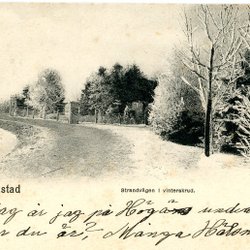 stad
Strandvägen i vinterskrud.
är jag på Högan unde
du är? Många Häls